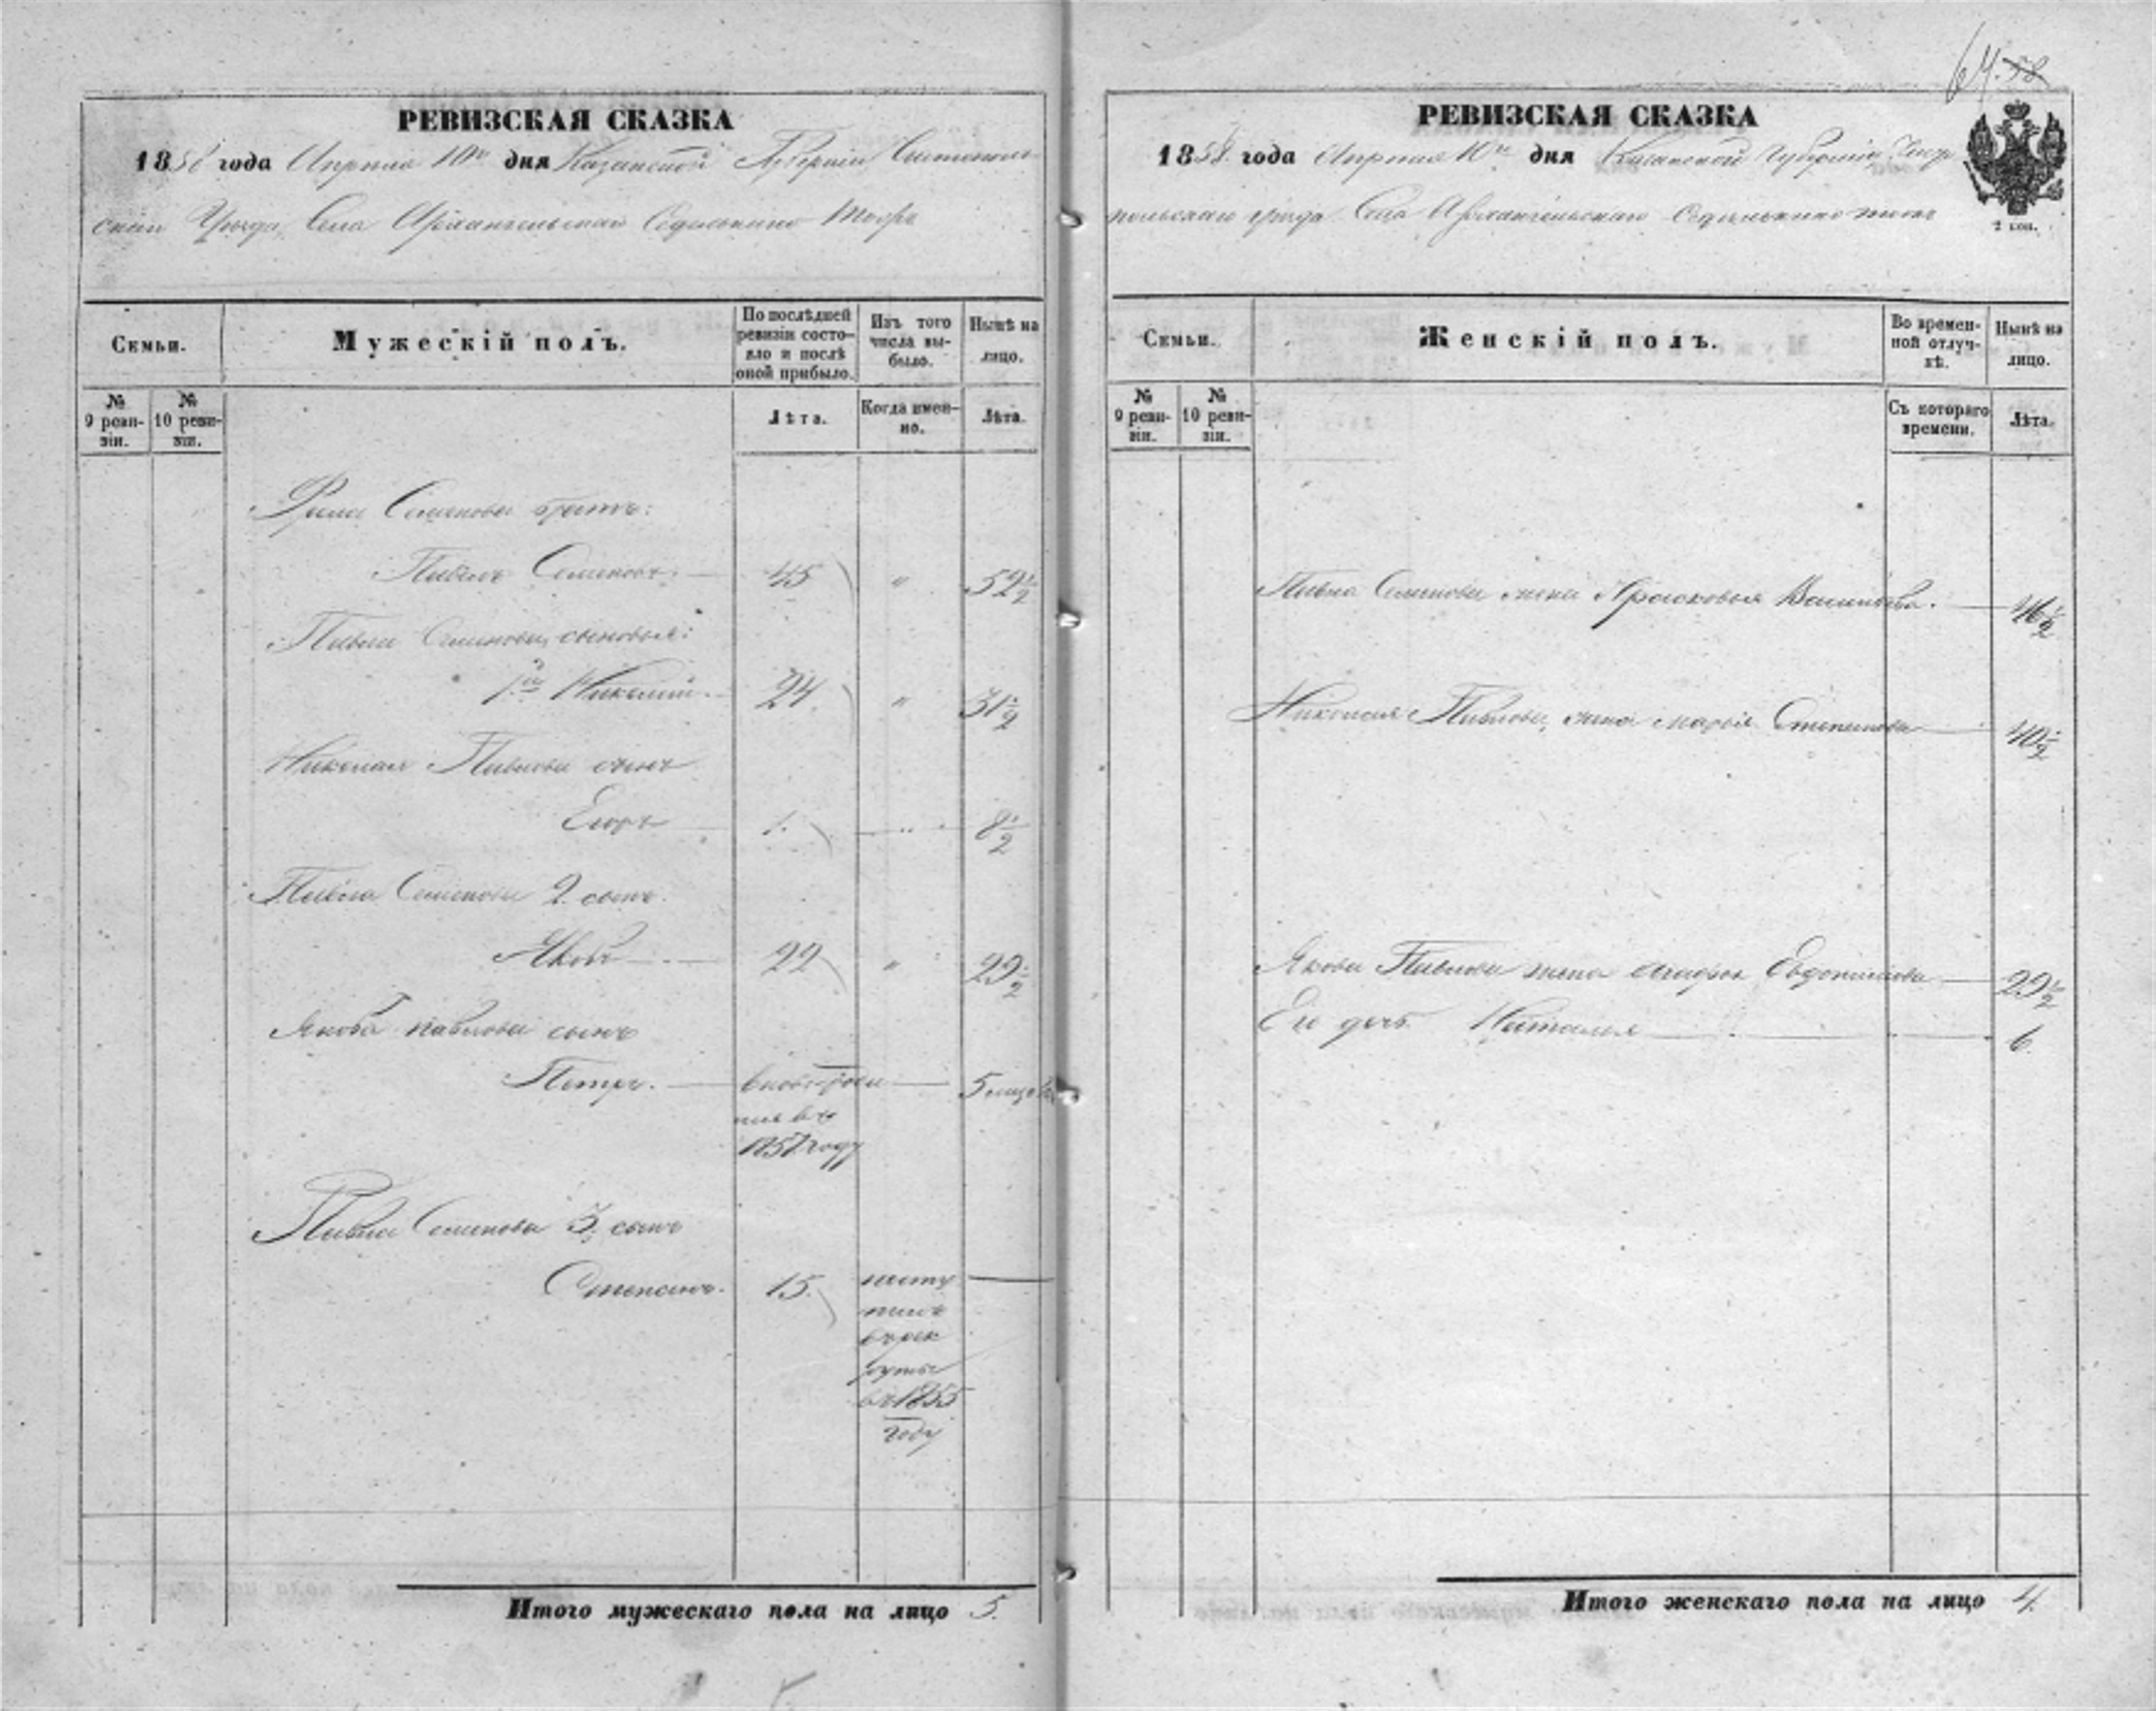 РЕВИЗСКАЯ СКАЗКА
1858 года Апреля 10го дня Казанской Губерніи Чистополь-
скаго Уѣзда, Села Архангельскаго
Семьи.
Мужескій полъ.
По послѣдней ревизіи состо-
яло и послѣ оной прибыло.
Изъ того числа вы-
было.
Нынѣ на лицо.
№ 9 реви-
зіи.
№ 10 реви-
зіи.
Лѣта.
Когда имен-
но.
Лѣта.
Семенова братъ:
Павелъ Семеновъ 45 " 52½
Павла Семенова сыновья:
1й Николай 24 " 31½
Николая Павлова сынъ
Егоръ 1. " 8½
Павла Семенова 2. сынъ
Яковъ 22 " 29½
Якова Павлова сынъ
Петръ. вновь рож 5 мѣся
въ
1857 году
Павла Семенова 3. сынъ
Степанъ. 15. посту
пилъ
въ рек
руты
въ 1855
году
Итого мужескаго пола на лицо 5.
64. 58
РЕВИЗСКАЯ СКАЗКА
1858. года Апреля 10го дня Казанской Губерніи Чисто
польскаго уѣзда Села Архангельскаго
2 коп.
Семьи.
Женскій полъ.
Во времен-
ной отлуч-
кѣ.
Нынѣ на лицо.
№ 9 реви-
зіи.
№ 10 реви-
зіи.
Съ котораго времени.
Лѣта.
Павла Семенова жена Прасковья Васильева. 46½
Николая Павлова жена Марья Степанова 40½
Якова Павлова жена 29½
Его дочь Наталья 6.
Итого женскаго пола на лицо 4.